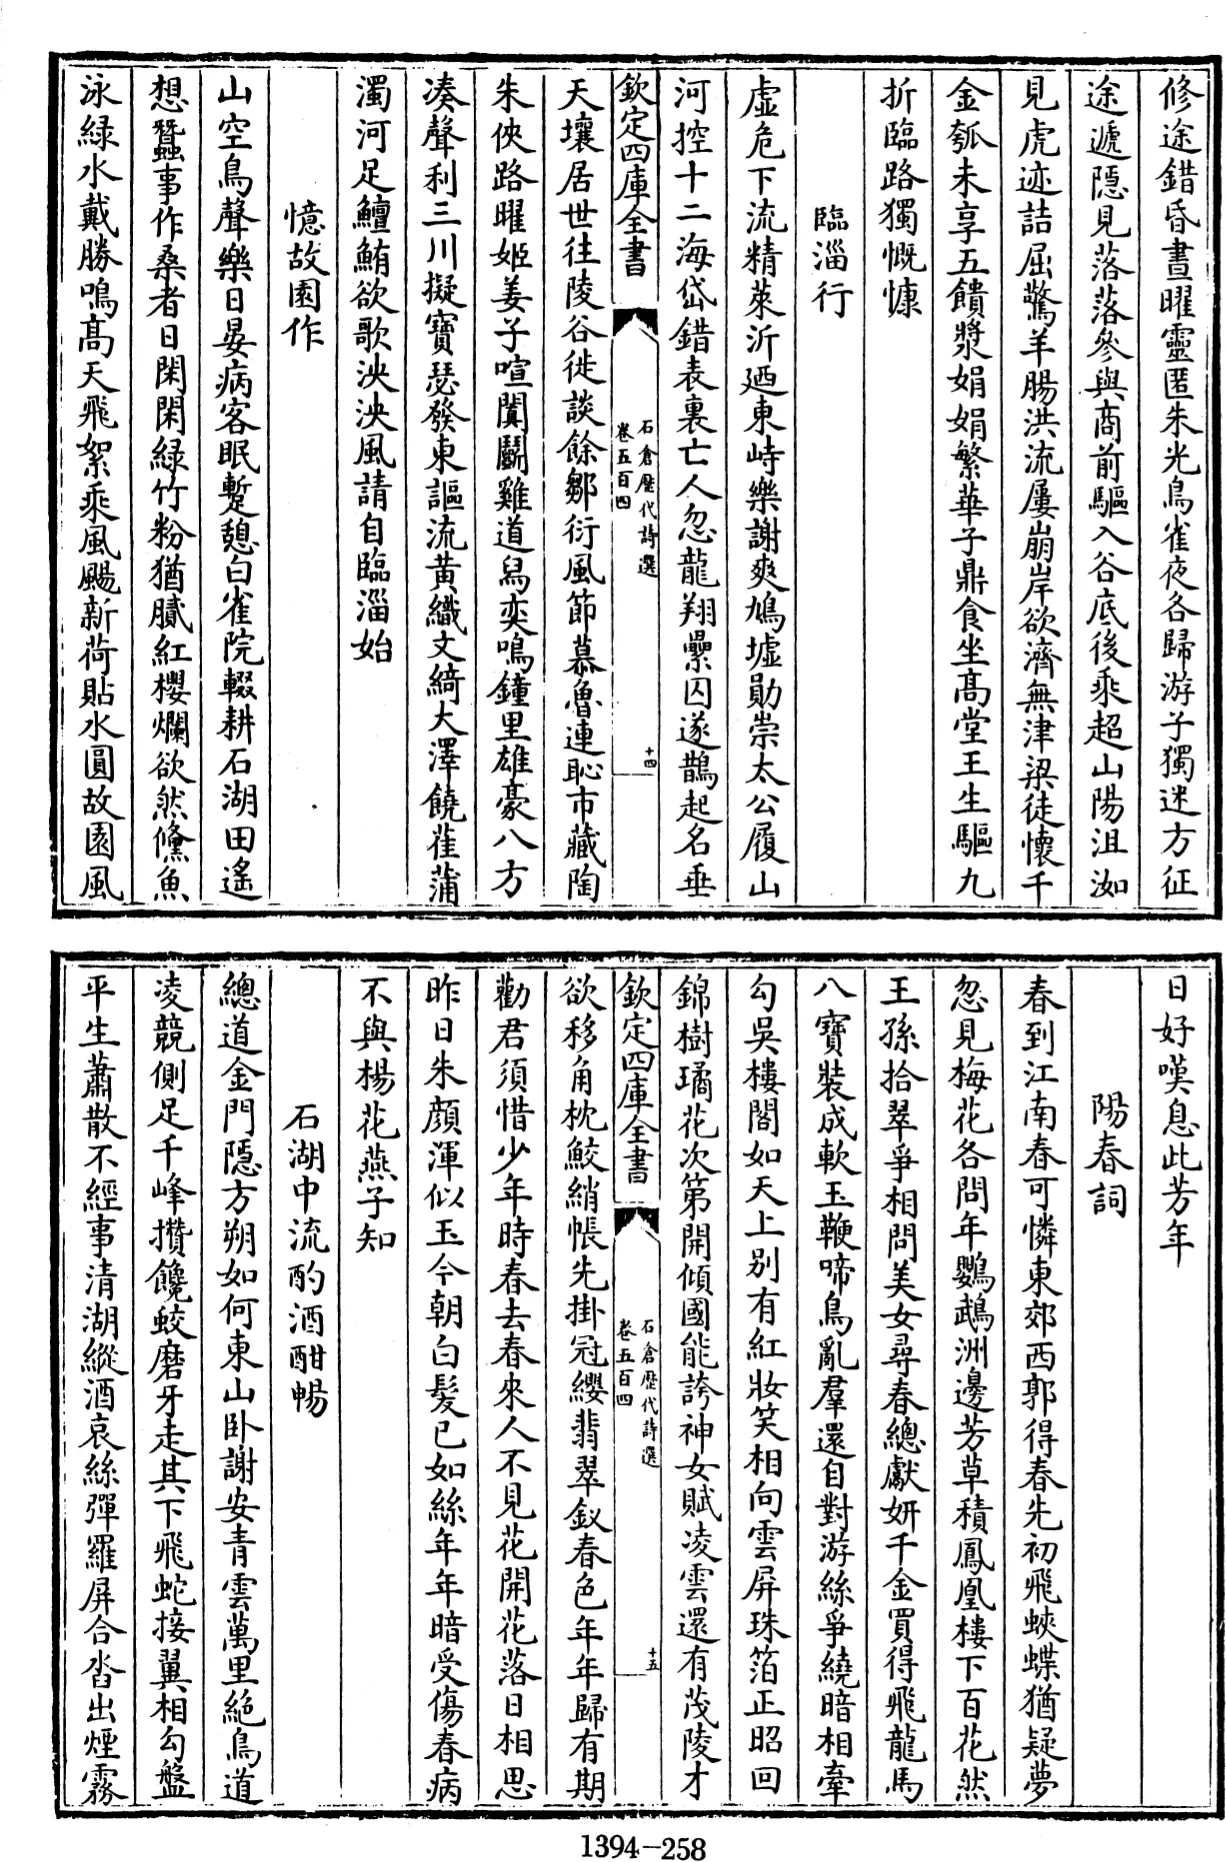 修途錯昏晝曜靈匿朱光鳥雀夜各歸游子獨迷方征
途遞隱見落落參與商前驅入谷底後乘超山陽沮洳
見虎迹詰屈驚羊腸洪流屢崩岸欲濟無津梁徒懷千
金瓠未享五饋漿娟娟繁華子鼎食坐髙堂王生驅九
折臨路獨慨慷
臨淄行
虛危下流精萊沂廼東峙樂謝爽鳩墟勛崇太公履山
河控十二海岱錯表裏亡人忽龍翔纍囚遂鵲起名垂
欽定四庫全書
石倉歷代詩選
卷五百四
十四
天壤居世往陵谷徙談餘鄒衍風節慕魯連恥市藏陶
朱俠路曜姬姜子喧闐鬭雞道舄奕鳴鐘里雄豪八方
湊聲利三川擬寶瑟發東謳流黄織文綺大澤饒萑蒲
濁河足鱣鮪欲歌泱泱風請自臨淄始
憶故園作
山空鳥聲樂日晏病客眠蹔憩白雀院輟耕石湖田遙
想蠶事作桑者日閑閑緑竹粉猶膩紅櫻爛欲然儵魚
泳緑水戴勝鳴髙天飛絮乘風颺新荷貼水圓故園風
日好嘆息此芳年
陽春詞
春到江南春可憐東郊西郭得春先初飛蛺蝶猶疑夢
忽見梅花各問年鸚鵡洲邊芳草積鳳凰樓下百花然
王孫拾翠爭相問美女尋春總獻妍千金買得飛龍馬
八寶裝成軟玉鞭啼鳥亂羣還自對游絲爭繞暗相牽
勾吳樓閣如天上别有紅妝笑相向雲屏珠箔正昭回
錦樹璚花次第開傾國能誇神女賦凌雲還有茂陵才
欽定四庫全書
石倉歷代詩選
卷五百四
十五
欲移角枕鮫綃帳先掛冠纓翡翠釵春色年年歸有期
勸君須惜少年時春去春來人不見花開花落日相思
昨日朱顔渾似玉今朝白髪已如絲年年暗受傷春病
不與楊花燕子知
石湖中流酌酒酣暢
總道金門隱方朔如何東山卧謝安青雲萬里絶鳥道
凌兢側足千峰攢饞蛟磨牙走其下飛蛇接翼相勾盤
平生蕭散不經事清湖縱酒哀絲彈羅屏合沓出煙霧
1394-258